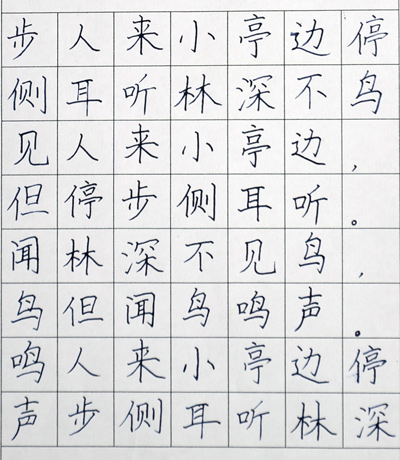 步人来小亭边停
侧耳听林深不鸟
见人来小亭边，
但停步侧耳听。
闻林深不见鸟，
鸟但闻鸟鸣声。
鸣人来小亭边停
声步侧耳听林深